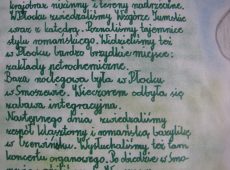 krajobraz nizinny i tereny nadrzeczne.
W Płocku zwiedzaliśmy Wzgórze Tumskie
wraz z katedrą. Poznaliśmy tajemnice
stylu romańskiego. Widzieliśmy też
w Płocku bardzo brzydkie miejsce:
zakłady petrochemiczne.
Baza noclegowa była w Płocku
w Smoszewie. Wieczorem odbyła się
zabawa integracyjna.
Następnego dnia zwiedzaliśmy
zespół klasztorny i romańską bazylikę
w Czerwińsku. Wysłuchaliśmy też tam
koncertu organowego. Po obiedzie w Smo-